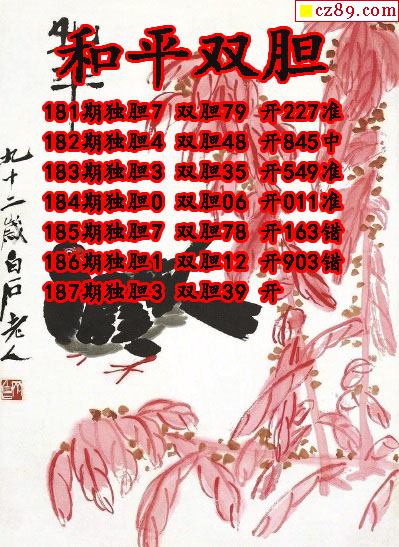 cz89.com
和平双胆
181期独胆7 双胆79 开227准
182期独胆4 双胆48 开845中
183期独胆3 双胆35 开549准
184期独胆0 双胆06 开011准
185期独胆7 双胆78 开163错
186期独胆1 双胆12 开903错
187期独胆3 双胆39 开
九十二岁白石老人